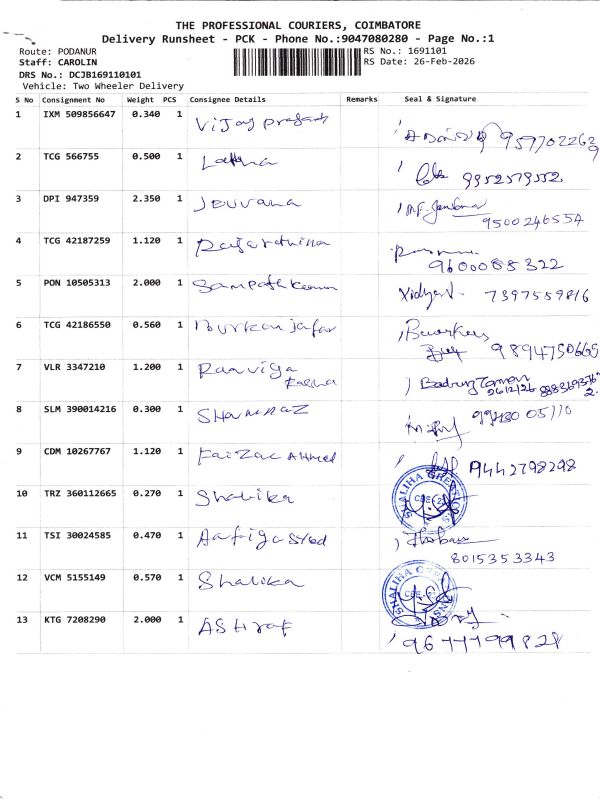 THE PROFESSIONAL COURIERS, COIMBATORE
Delivery Runsheet - PCK - Phone No.:9047080280 - Page No.:1
Route: PODANUR RS No.: 1691101
Staff: CAROLIN RS Date: 26-Feb-2026
DRS No.: DCJB169110101
Vehicle: Two Wheeler Delivery
S No Consignment No Weight PCS Consignee Details Remarks Seal & Signature
1 IXM 509856647 0.340 1 Vijay prasath
2 TCG 566755 0.500 1 Latha 9952579552
3 DPI 947359 2.350 1 Jeuvana
9500246554
4 TCG 42187259 1.120 1
9600085322
5 PON 10505313 2.000 1 Sampath Kumar Vidyavt. 7397559816
6 TCG 42186550 0.560 1 Nurkan jafar
7 VLR 3347210 1.200 1
8 SLM 390014216 0.300 1 Shamnaz
9 CDM 10267767 1.120 1 Faizac Ahmed 9442798298
10 TRZ 360112665 0.270 1 Shalika
11 TSI 30024585 0.470 1 Aafiga syed
8015353343
12 VCM 5155149 0.570 1 Shalika
13 KTG 7208290 2.000 1 Ashraf
9677799828